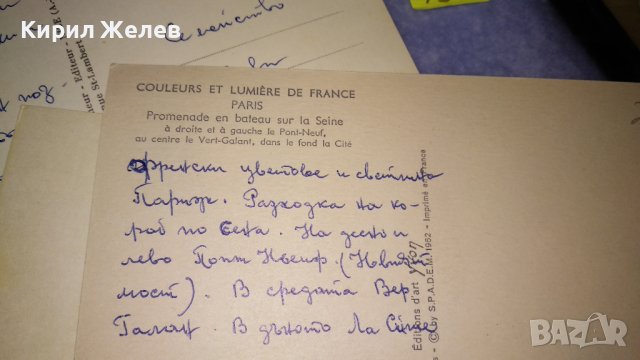 Кирил Желев
Семейство
COULEURS ET LUMIÈRE DE FRANCE
PARIS
Promenade en bateau sur la Seine
à droite et à gauche le Pont-Neuf,
au centre le Vert-Galant, dans le fond la Cité
френски цветове и светлина
Париж. Разходка на ко-
раб по Сена. На дясно и
лево Понт Ньоф (Новият
мост). В средата Вер
Галан. В дъното Ла Сите
Editions d'art Yvon
by S.P.A.D.E.M. 1962 - Imprimé en France
bazar.bg